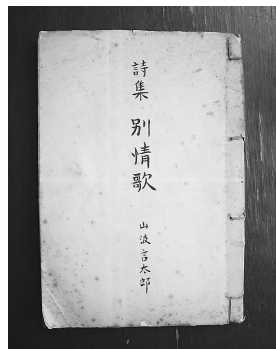 詩集 別情歌
山波言太郎